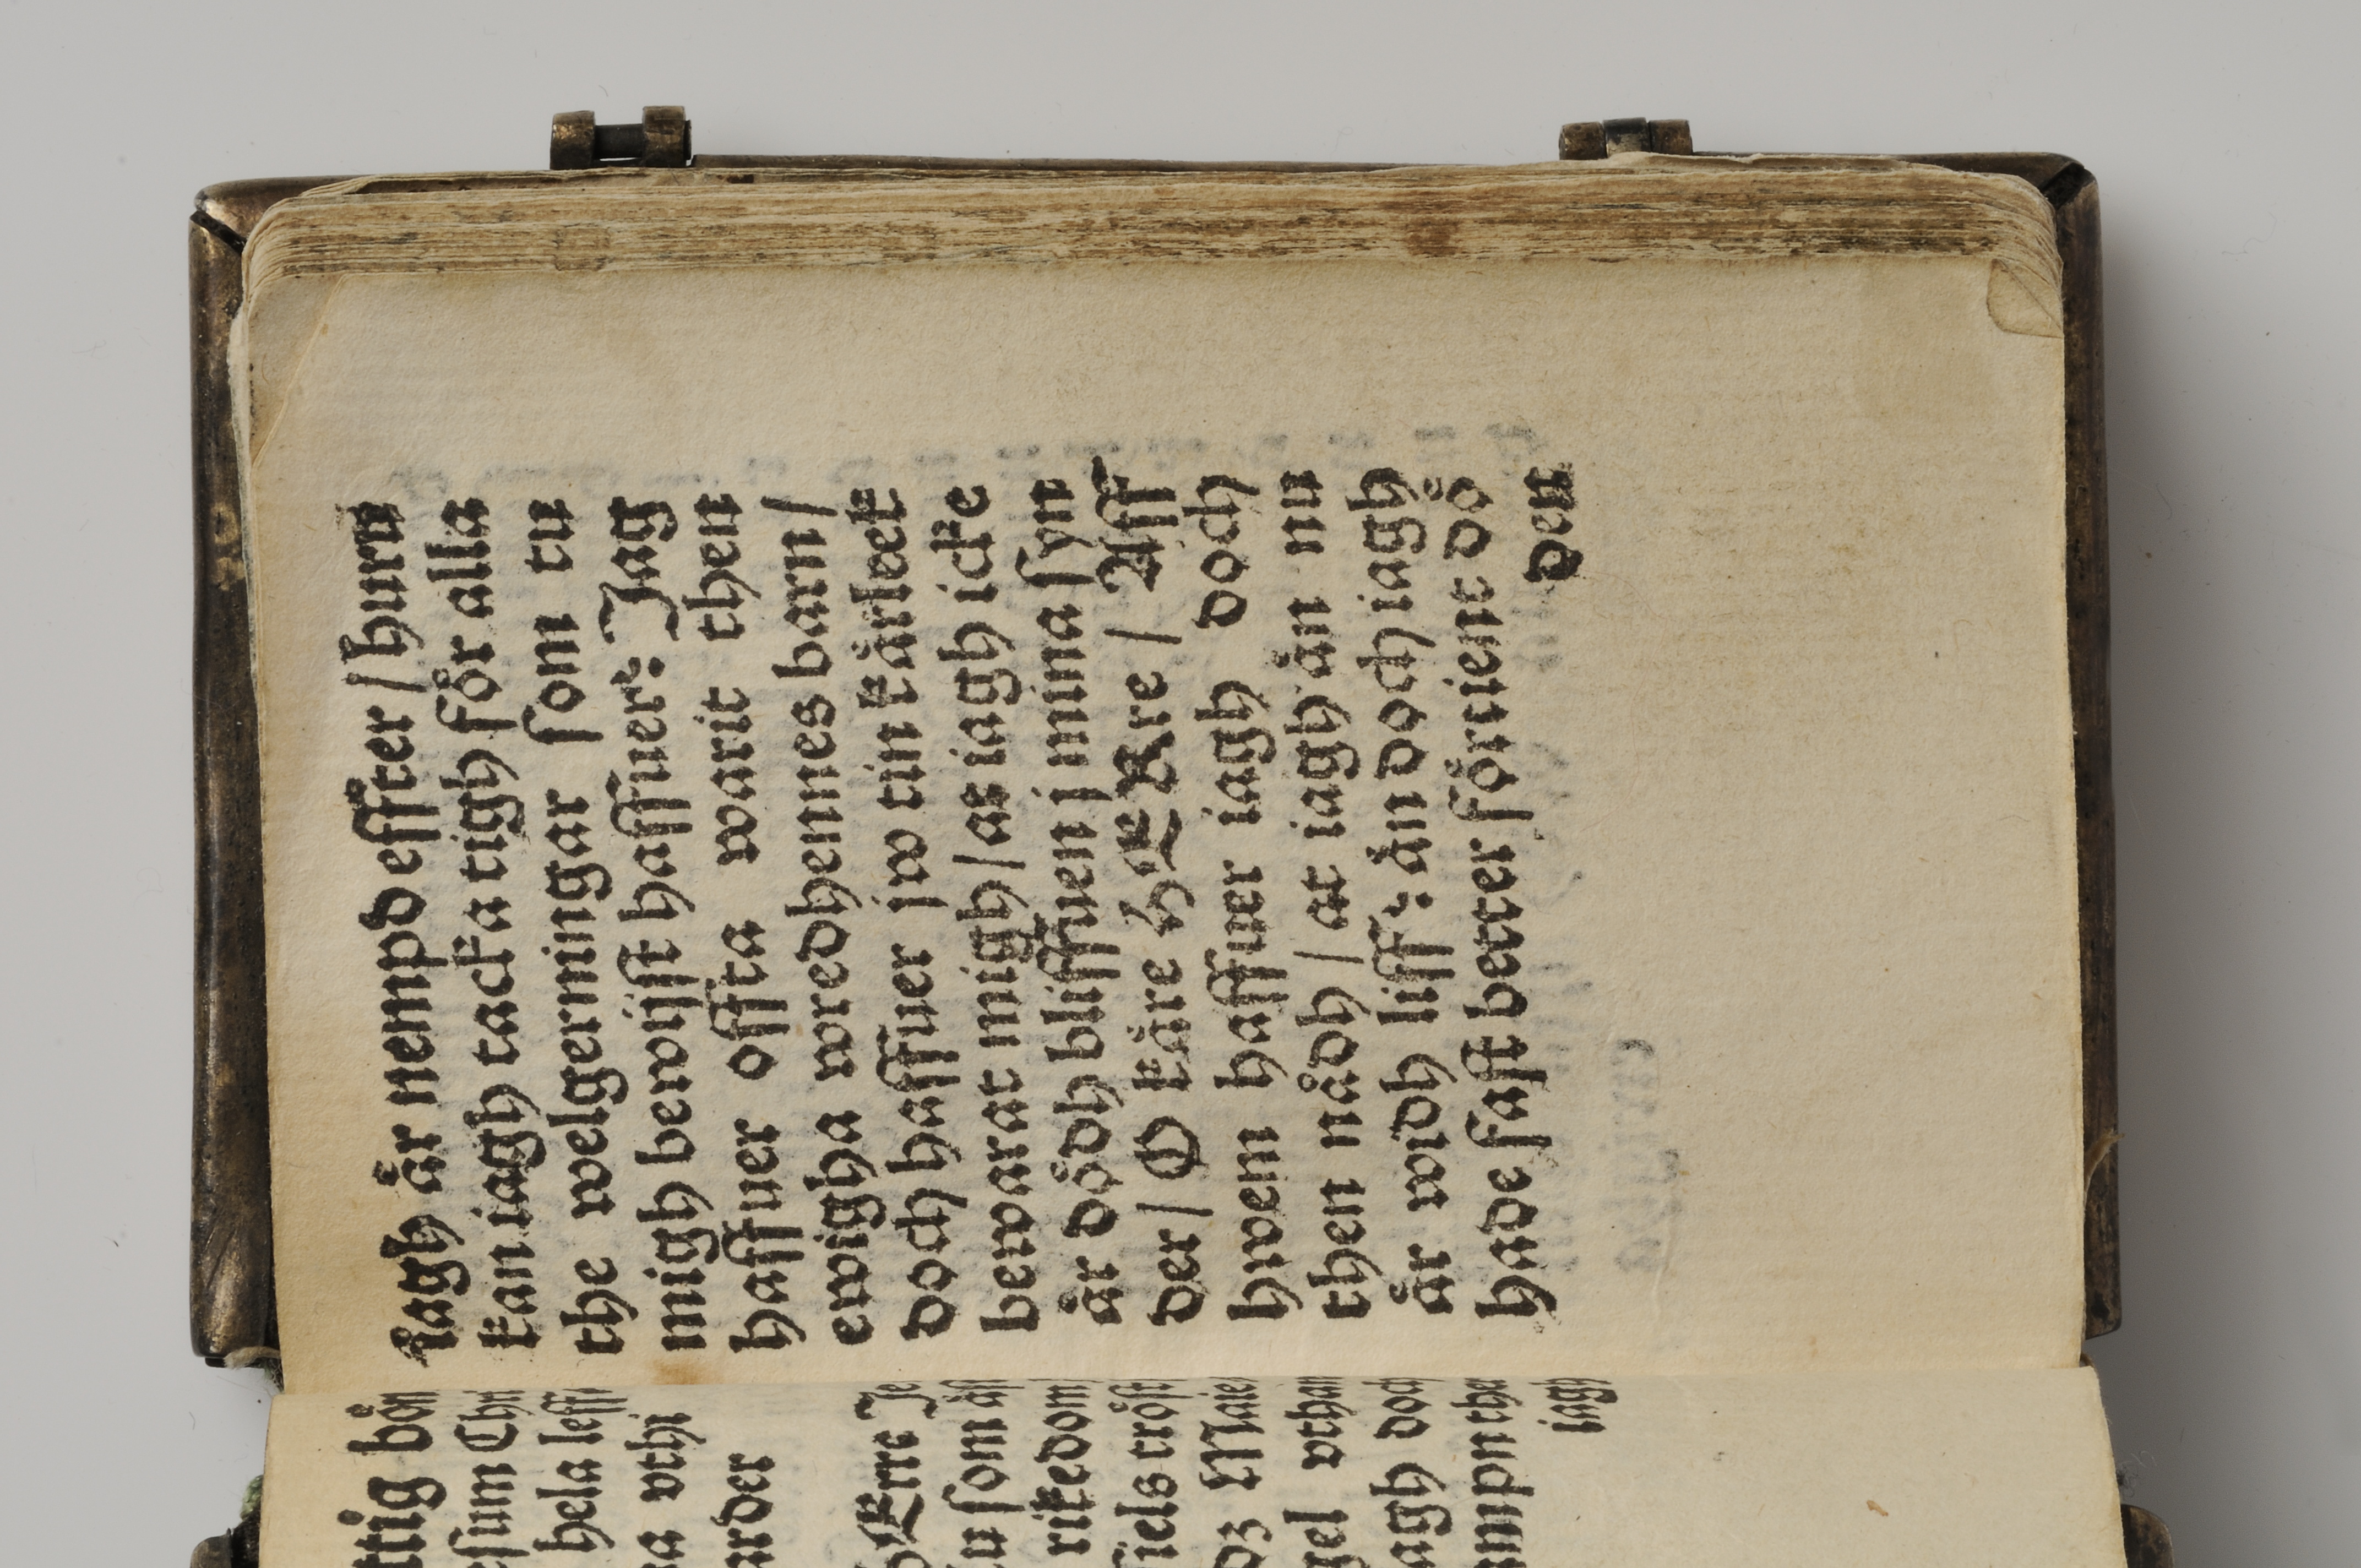 ttig bön
esum Chri
hela leff
vthi
arder
Erre Je
u som äst
rikedom
fiels tröst
oz Maie
gel vthan
agh doch
ampn tha
iagh
iagh är nempd effter / huru
kan iagh tacka tigh för alla
the welgerningar som tu
migh bewijst haffuer: Jag
haffuer offta warit then
ewigha wredhennes barn /
doch haffuer jw tin kärleek
bewarat migh / at iagh icke
är dödh bliffuen j mina syn
der / O käre HERre / Aff
hwem haffuer iagh doch
then nådh / at iagh än nu
är widh liff: än doch iagh
hade fast better förtient dö
den